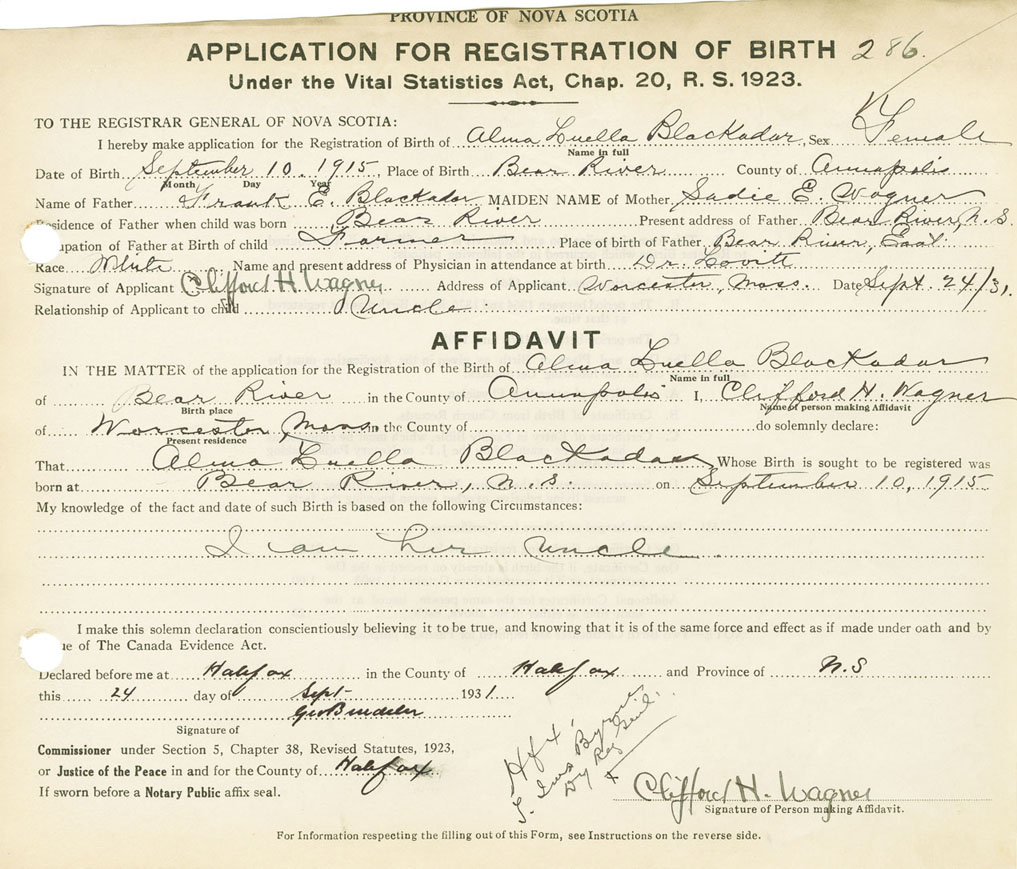 PROVINCE OF NOVA SCOTIA
APPLICATION FOR REGISTRATION OF BIRTH 286.
Under the Vital Statistics Act, Chap. 20, R. S. 1923.
TO THE REGISTRAR GENERAL OF NOVA SCOTIA:
I hereby make application for the Registration of Birth of Alma Luella Blackadar Sex Female
Name in full
Date of Birth September 10 1915 Place of Birth Bear River County of Annapolis
Month Day Year
Name of Father Frank E. Blackadar MAIDEN NAME of Mother Sadie E. Wagner
esidence of Father when child was born Bear River Present address of Father Bear River, N.S.
cupation of Father at Birth of child Farmer Place of birth of Father Bear River, East
Race White Name and present address of Physician in attendance at birth Dr. Lovitt
Signature of Applicant Clifford H. Wagner Address of Applicant Worcester, Mass. Date Sept. 24/31.
Relationship of Applicant to child Uncle
AFFIDAVIT
IN THE MATTER of the application for the Registration of the Birth of Alma Luella Blackadar
Name in full
of Bear River in the County of Annapolis I, Clifford H. Wagner
Birth place Name of person making Affidavit
of Worcester, Mass in the County of do solemnly declare:
Present residence
That Alma Luella Blackadar Whose Birth is sought to be registered was
born at Bear River, N.S. on September 10, 1915
My knowledge of the fact and date of such Birth is based on the following Circumstances:
I am her uncle.
I make this solemn declaration conscientiously believing it to be true, and knowing that it is of the same force and effect as if made under oath and by
ue of The Canada Evidence Act.
Declared before me at Halifax in the County of Halifax and Province of N.S
this 24 day of Sept 1931.
Signature of
Commissioner under Section 5, Chapter 38, Revised Statutes, 1923,
or Justice of the Peace in and for the County of Halifax
If sworn before a Notary Public affix seal.
Hfx
Byrne
Dy Reg Genl.
Clifford H. Wagner
Signature of Person making Affidavit.
For Information respecting the filling out of this Form, see Instructions on the reverse side.